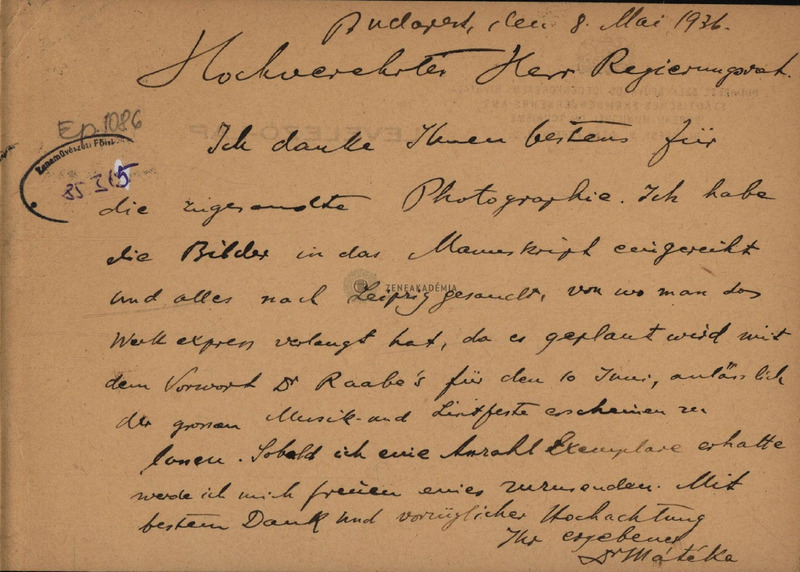 Budapest, den 8. Mai 1936.
Hochverehrter Herr Regierungsrat.
Ep. 1086
Ich danke Ihnen bestens für
Zeneművészeti Főisk
85 I 15
die zugesandte Photographie. Ich habe
die Bilder in das Manuskript eingereiht
ZENEAKADÉMIA
und alles nach Leipzig gesandt, von wo man das
Werk express verlangt hat, da es geplant wird mit
dem Vorwort Dr Raabe's für den 10 Juni, anlässlich
der grossen Musik- und Lisztfeste erscheinen zu
lassen. Sobald ich eine Anzahl Exemplare erhalte
werde ich mich freuen eines zuzusenden. Mit
bestem Dank und vorzüglicher Hochachtung
Ihr ergebener
Dr Máté